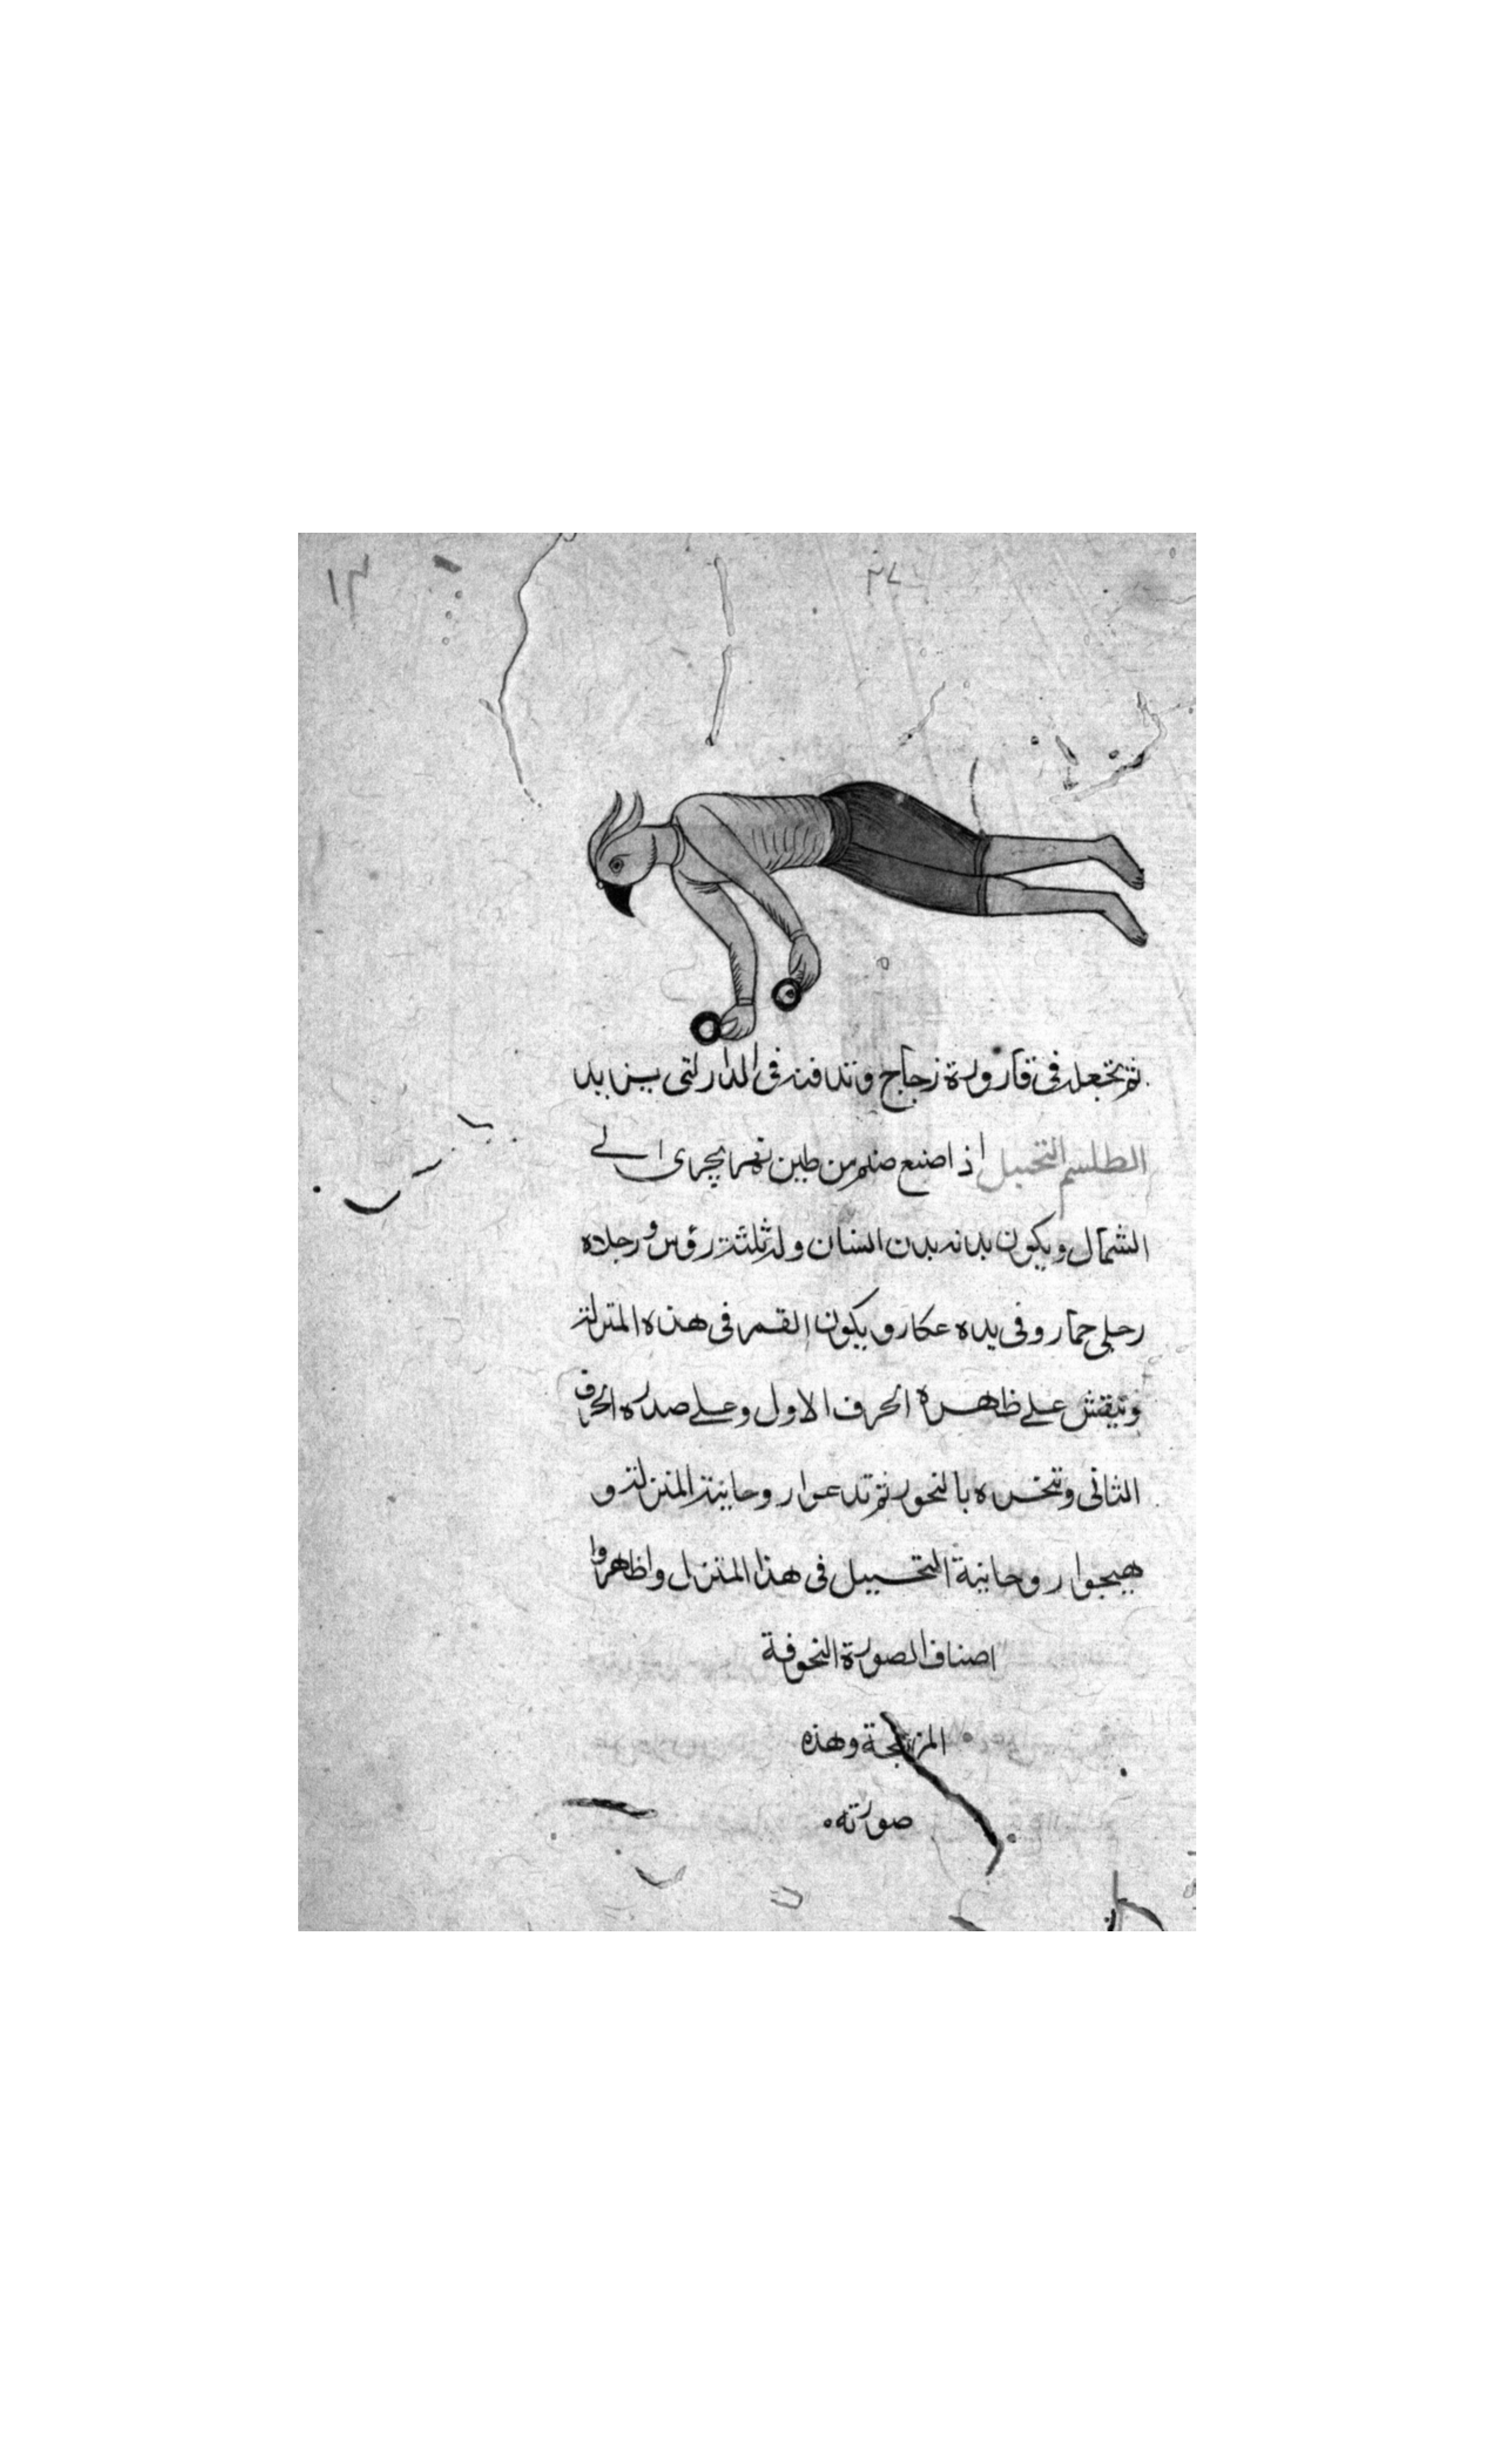 ثم تجعله فى قارورة زجاج وتدفنه فى الدار لتى يزيد
الطلسم التخييل اذ اصنع صنم من طين نهر يجرى الے
الشمال ويكون بدنه بدن انسان وله ثلثة رؤس ورجلاه
رجلى حمار وفى يده عكاز ويكون القمر فى هذه المنزلة
وتنقش على ظاهره الحرف الاول وعلے صدره الحرف
الثانى وتبخره بالبخور ثم تدعوا روحانية المنزلة و
هيجوا روحانية التخييل فى هذا المنزل واظهروا
اصناف الصورة
المزعجة وهذه
صورته